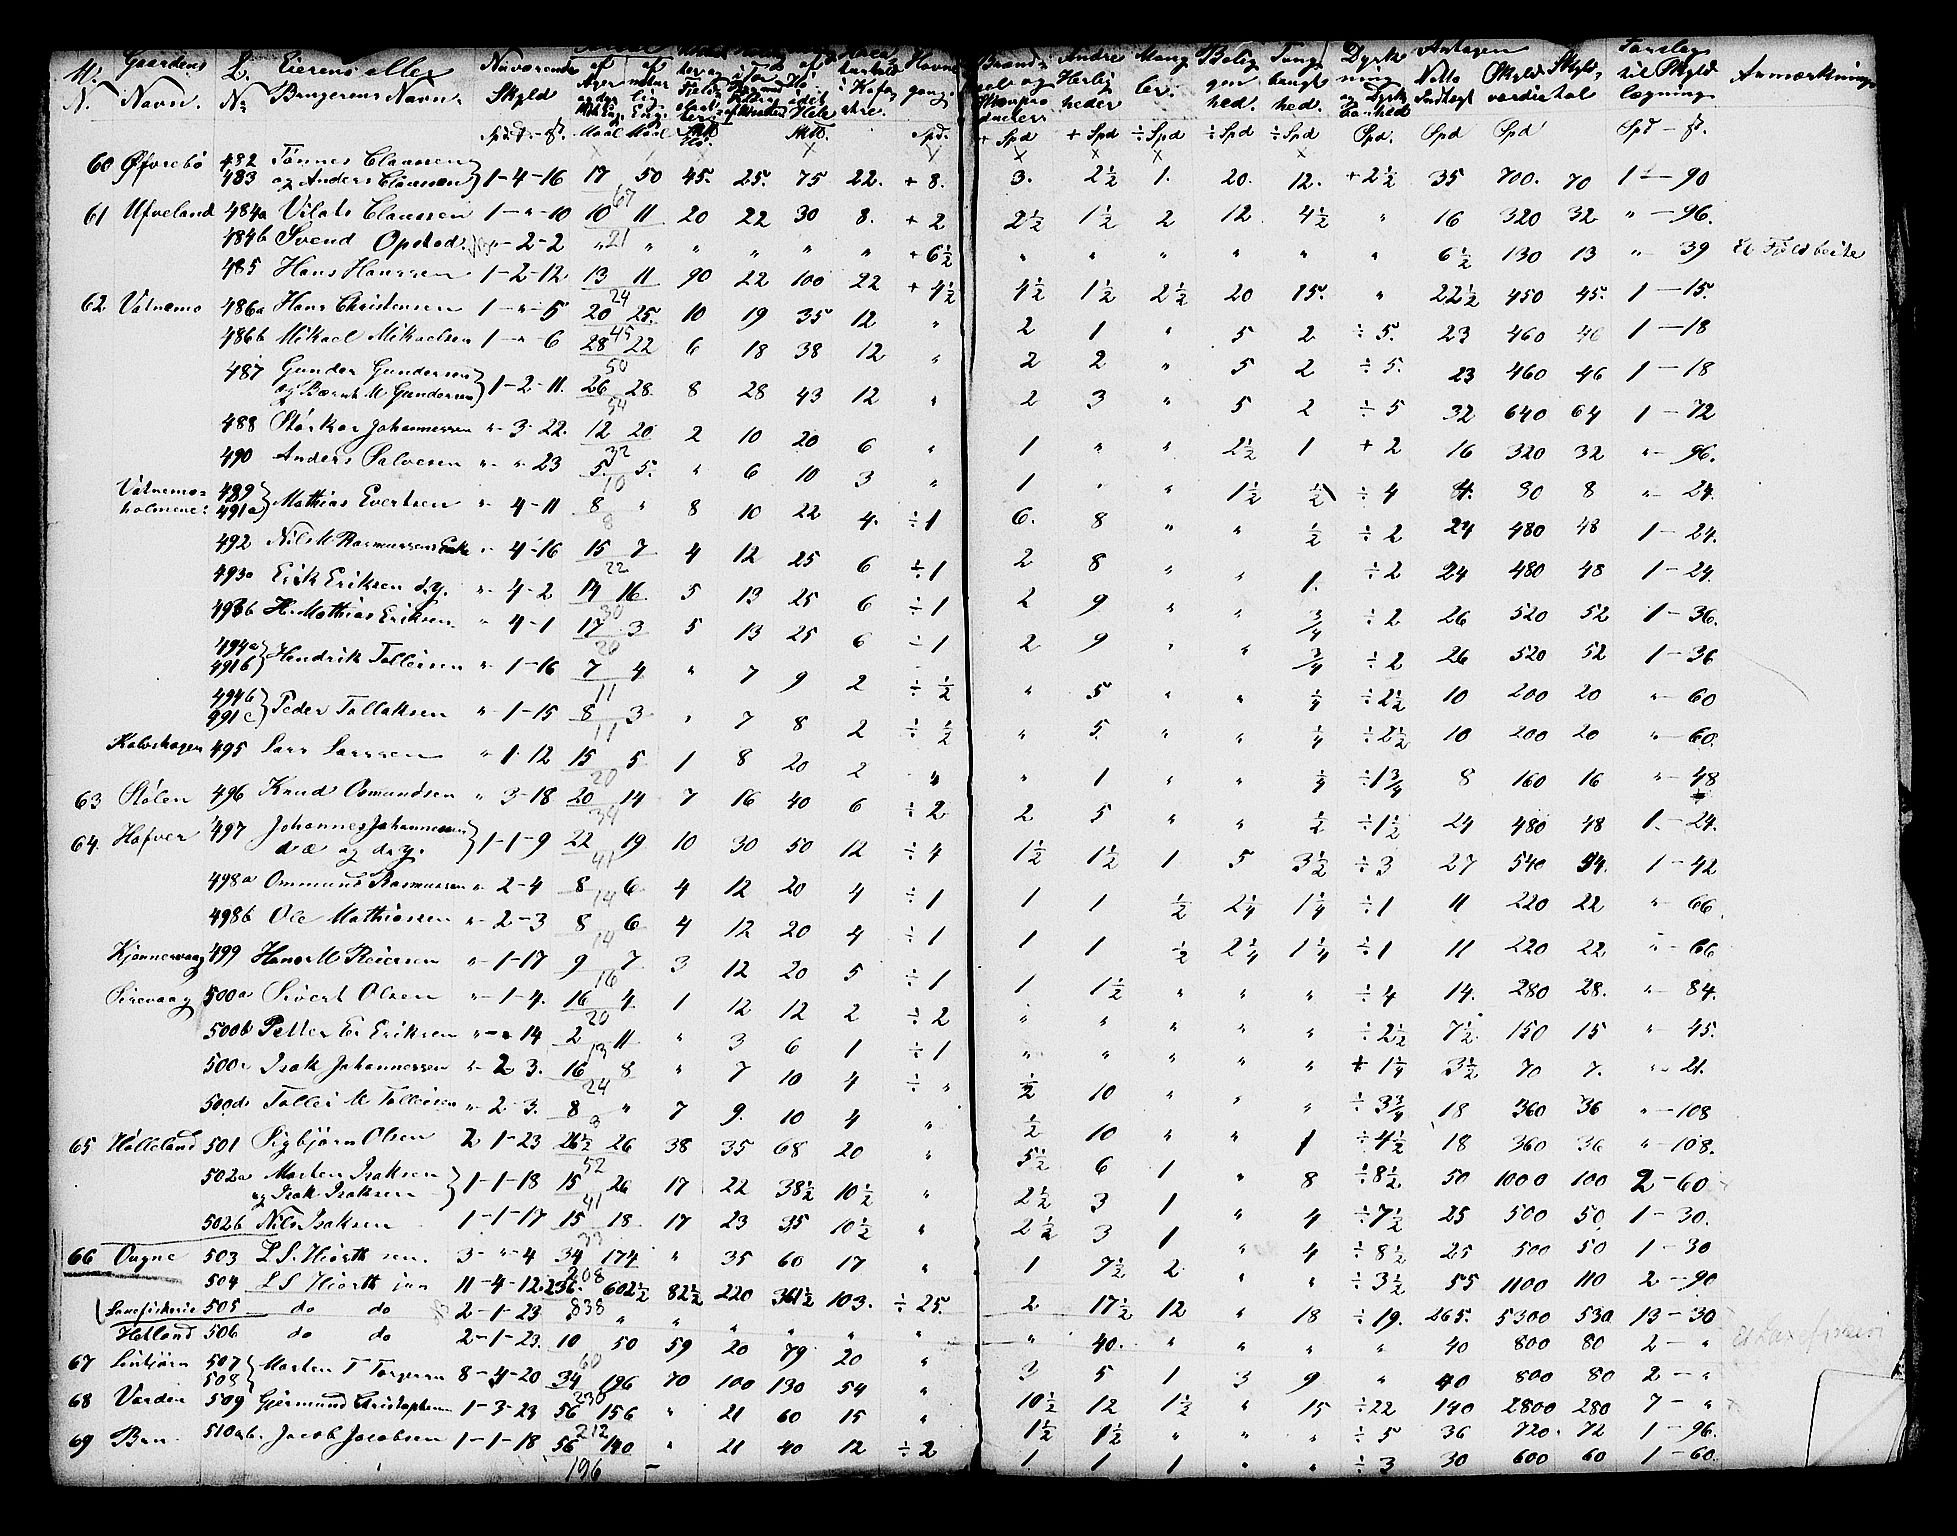 M. Gaardens L. Eierens eller Nuværende
N. Navn. Nr Brugerens Navn. Skyld
Spd. - ß. Maal Maal Spd. + Spd + Spd ÷ Spd ÷ Spd ÷ Spd Spd. Spd Spd Spd - ß.
60 Øfvrebø 482 Tønnes Claussen
483 og Anders Claussen } 1-4-16 17 50 45. 25. 75 22. + 8. 3. 2½ 1. 20. 12. +2½ 35 700. 70 1 - 90
67
61 Ufveland 484a Vilats Claussen 1-"-10 10 11 20 22 30 8. + 2 2½ 1½ 2 12 4½ " 16 320 32 " - 96.
21
484b Svend Opstad "-2-2 " " " " " " + 6½ " " " " " " 6½ 130 13 " - 39
485 Hans Hanssen 1-2-12 13 11 90 22 100 22 + 4½ 4½ 1½ 2½ 20 15. " 22½ 450 45. 1 - 15.
24
62 Vatnemo 486a Hans Christensen 1-"-5 20 25. 10 19 35 12 " 2 1 " 5 2 ÷ 5. 23 460 46 1 - 18
45
486b Mikael Mikaelsen 1-"-6 28 22 6 18 38 12 " 2 2 " 5 2 ÷ 5. 23 460 46 1 - 18
50
487 Gunder Gundersen
og Bernt M Gundersen } 1-2-11. 26 28 8 28 43 12 " 2 3 " 5 2 ÷ 5 32 640 64 1 - 72
54
488 Størkor Johannessen "-3-22. 12 20 2 10 20 6 " 1 " " 2½ 1 + 2 16 320 32 " - 96.
32
490 Anders Salvesen "-"-23 5. 5. " 6 10 3 " 1 " " 1½ ½ ÷ 4 4. 80 8 " - 24.
10
Vatnemo= 489
holmene: 491a } Mathias Evertsen "-4-11 8 " 8 10 22 4. ÷1 6. 8 " " ½ ÷ 2 24 480 48 1 - 24.
8
492 Nils M Rasmussens Enke "-4-16 15 7 4 12 25 6 ÷1 2 8 " " 1. ÷2 24 480 48 1 - 24.
22
493a Erik Eriksen d.y. "-4-2 14 16. 5 13 25 6 ÷1 2 9 " " ¾ ÷ 2 26 520 52 1 - 36.
30
493b H. Mathias Eriksen "-4-1 17 3 5 13 25 6 ÷1 2 9 " " ¾ ÷ 2 26 520 52 1 - 36
20
494a
491b } Hendrik Tolleisen "-1-16 7 4 " 7 9 2 ÷ ½ " 5 " " ¼ ÷2½ 10 200 20 " - 60
11
494b
491c } Peder Tollaksen "-1-15 8 3 " 7 8 2 ÷ ½ " 5. " " ¼ ÷2½ 10 200 20 " - 60.
11
Kalvehagen 495 Lars Larssen "-1-12 15 5 1 8 20 2 " " 1 " " ¼ ÷1¾ 8 160 16 " - 48
20
63 Stølen 496 Knud Osmundsen "-3-18 20 14 7 16 40 6 ÷ 2 2 5 " " ½ ÷1½ 24 480 48 1. - 24.
34
64. Hafver 497 Johannes Johannessen
d.æ og d.y. } 1-1-9 22 19 10 30 50 12 ÷ 4 1½ 1½ 1 5 3½ ÷ 3 27 540 54. 1 - 42
41
498a Ommund Rasmussen "-2-4 8 6 4 12 20 4 ÷1 1 1 ½ 2¼ 1¼ ÷1 11 220 22 " - 66
14
498b Ole Mathiassen "-2-3 8 6 4 12 20 4 ÷1 1 1 ½ 2¼ 1¼ ÷1 11 220 22 " - 66
14
Kjønnervaag 499 Hans M Reiersen "-1-17 9 7 3 12 20 5 ÷1 1 1½ " " " ÷ 4 14. 280 28. " - 84.
16
Sirevaag 500a Sivert Olsen "-1-4. 16 4 1 12 12 2 ÷ 2 " " " " " ÷2½ 7½ 150 15 " - 45.
20
500b Petter E. Eriksen "-"-14 2 11 " 3 6 1 ÷1 " " " " " + 1¼ 3½ 70 7. " - 21.
13
500c Isak Johannessen "-2-3. 16 8 " 7 10 4 ÷ " ½ 10 " " " ÷ 3¾ 18 360 36 " - 108
24
500d. Tollei M Tolleisen "-2-3. 8 " 7 9. 10 4 " ½ 10 " " 1 ÷4½ 18 360 36 " - 108.
65 Hølleland 501 Sigbjørn Olsen 2 1-23 26½ 26 38 35 68 20 " 5½ 6 1 " 8 ÷8½ 50 1000 100 2 - 60
52
502a Morten Isaksen
og Isak Isaksen } 1-1-18 15 26 17 22 38½ 10½ " 2½ 3 1 " 4 ÷7½ 25 500 50 1 - 30.
41
502b Nils Isaksen 1-1-17 15 18. 17 23 35 10½ " 2½ 3 1 " 4 ÷ 8½ 25 500 50 1 - 30
33
66 Ougne 503 L. S. Hiorth sen. 3-"-4 34 174 " 35 60 17 " 1 7½ 2 " " ÷ 3½ 55 1100 110 2 - 90
208
504 L S Hiorth jun 11-4-12. 236. 602½ 82½ 220 361½ 103. ÷ 25. 2 17½ 12 " 18 ÷ 19. 265. 5300 530 13 - 30
838
Laxefiskerie 505 do do 2-1-23 " " " " " " " " 40. " " " " 40 800 80 2 - "
Hetland 506 do do 2-1-23. 10 50 59 20 79 20 " 3 5 1 3 9 " 40 800 80 2 - "
60
67 507
508 } Morten T Torgersen 8-4-20 34 196 70 100 130 54 " 10½ 12 1½ " 15 ÷22 140 2800 280 7 - "
230
68 Varden 509 Gjermund Christophersen 1-3-23 56 156 " 21 60 15 " 1½ 1½ " " " ÷ 5 36 720. 72 1 - 96.
212
69 Bru. 510a,b. Jacob Jacobsen 1-1-18 56 140 " 21 40 12 ÷ 2 1. 1 1 " " ÷ 3 30 600 60 1 - 60.
196